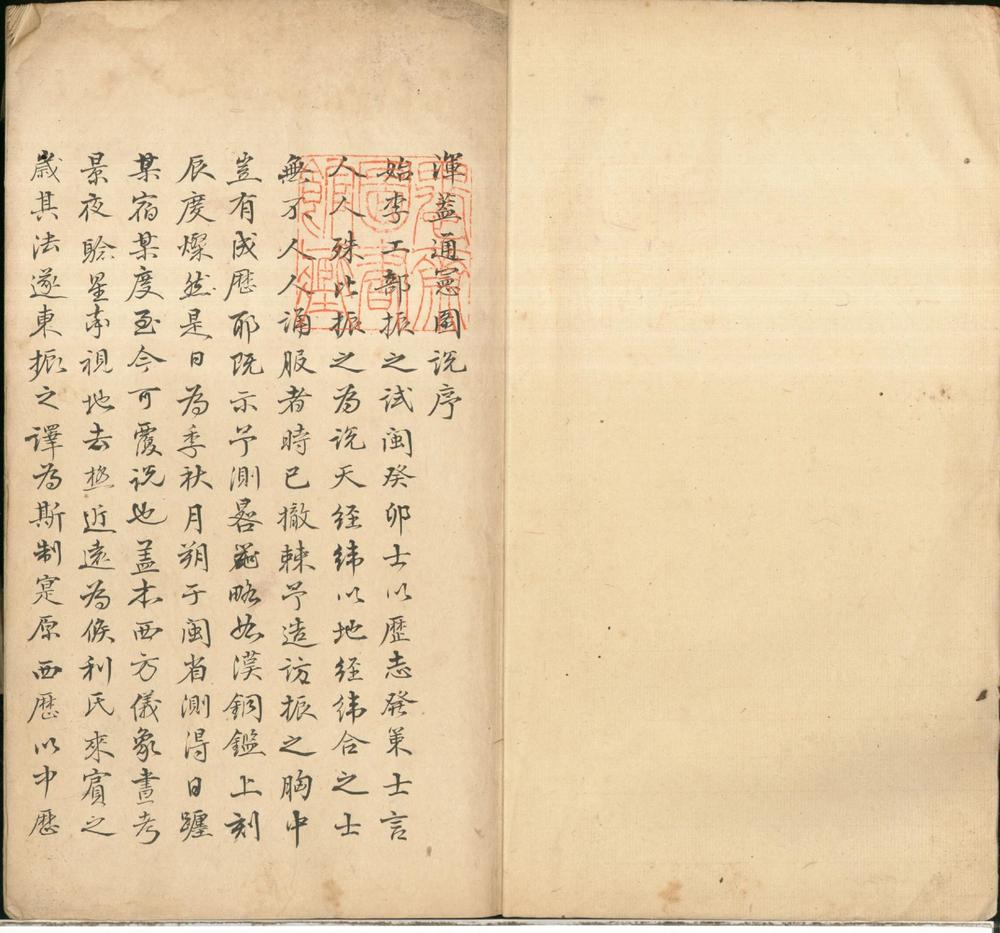 渾蓋通憲圖説序
始李工部振之試閩癸卯士以歷志發策士言
人人殊比振之為説天經緯以地經緯合之士
無不人人誦服者時已撤棘予造訪振之胸中
豈有成歷耶既示予測晷器略如漢銅鑑上刻
辰度燦然是日為季秋月朔于閩省測得日躔
某宿某度至今可覆説也蓋本西方儀象晝考
景夜瞼星率視地去極近遠為候利氏來賓之
歲其法遂東振之譯為斯制寔原西歷以中歷